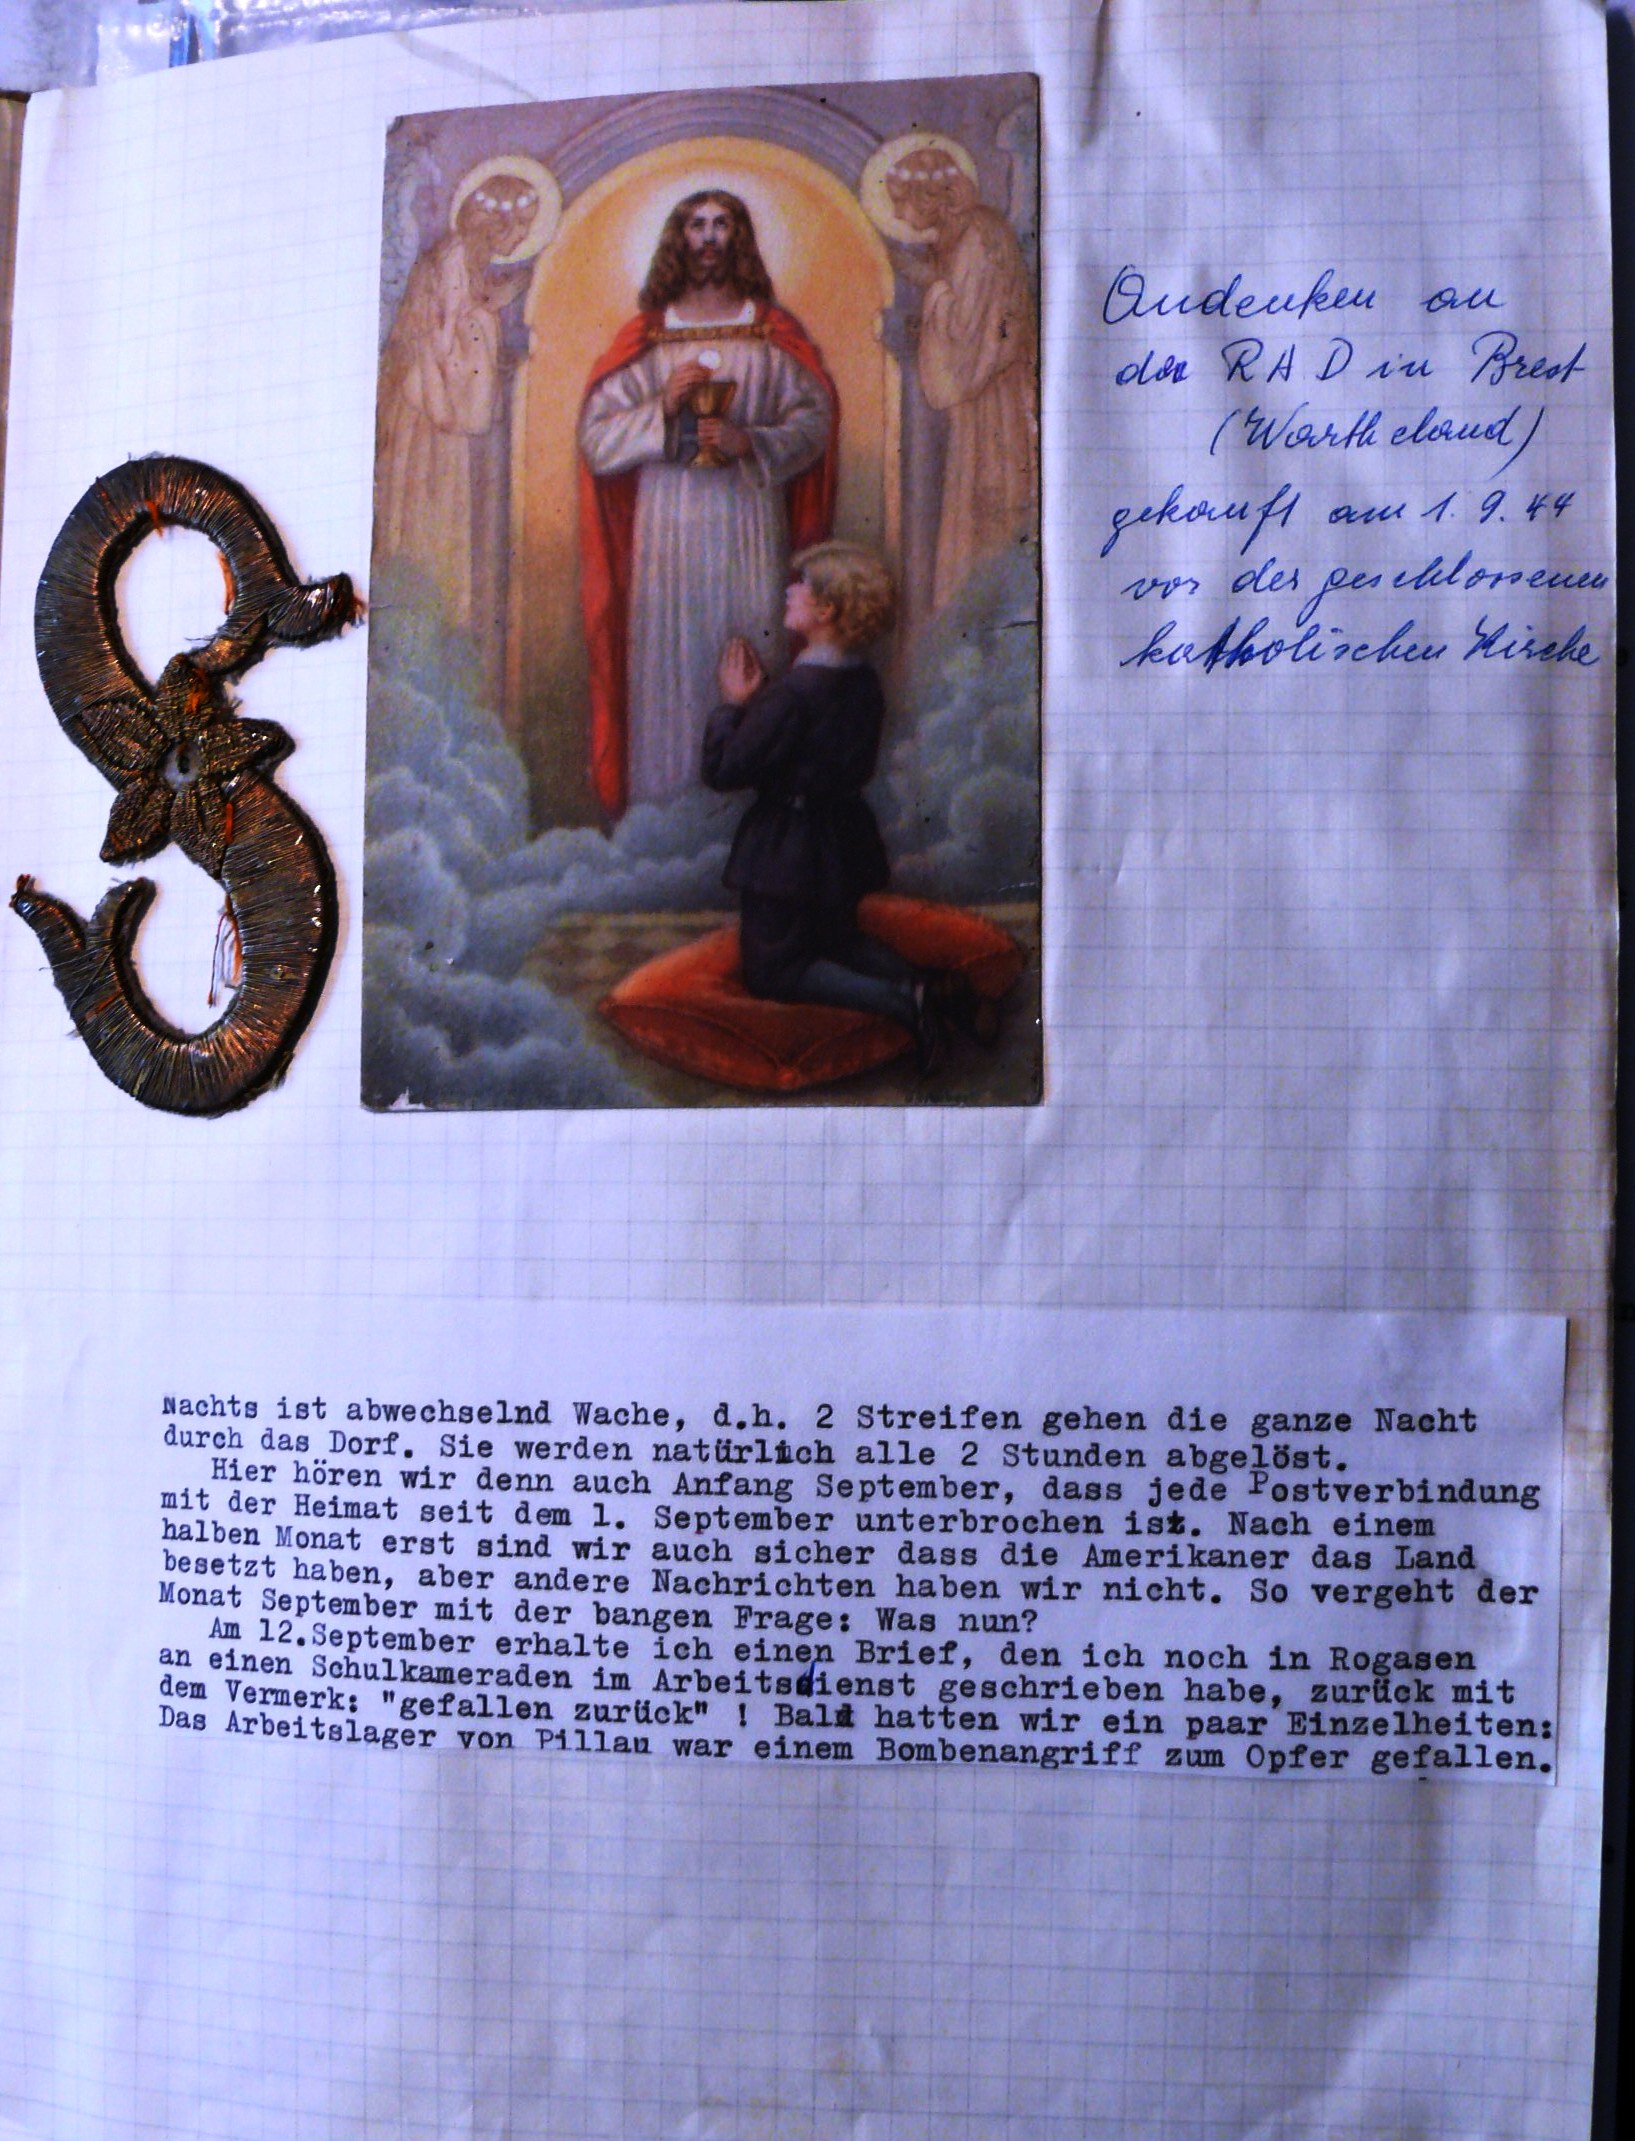 Andenken an
den RAD in Brest
(Wartheland)
gekauft am 1. 9. 44
vor der geschlossenen
katholischen Kirche
S
Nachts ist abwechselnd Wache, d.h. 2 Streifen gehen die ganze Nacht
durch das Dorf. Sie werden natürlich alle 2 Stunden abgelöst.
Hier hören wir denn auch Anfang September, dass jede Postverbindung
mit der Heimat seit dem 1. September unterbrochen ist. Nach einem
halben Monat erst sind wir auch sicher dass die Amerikaner das Land
besetzt haben, aber andere Nachrichten haben wir nicht. So vergeht der
Monat September mit der bangen Frage: Was nun?
Am 12.September erhalte ich einen Brief, den ich noch in Rogasen
an einen Schulkameraden im Arbeitsdienst geschrieben habe, zurück mit
dem Vermerk: "gefallen zurück" ! Bald hatten wir ein paar Einzelheiten:
Das Arbeitslager von Pillau war einem Bombenangriff zum Opfer gefallen.